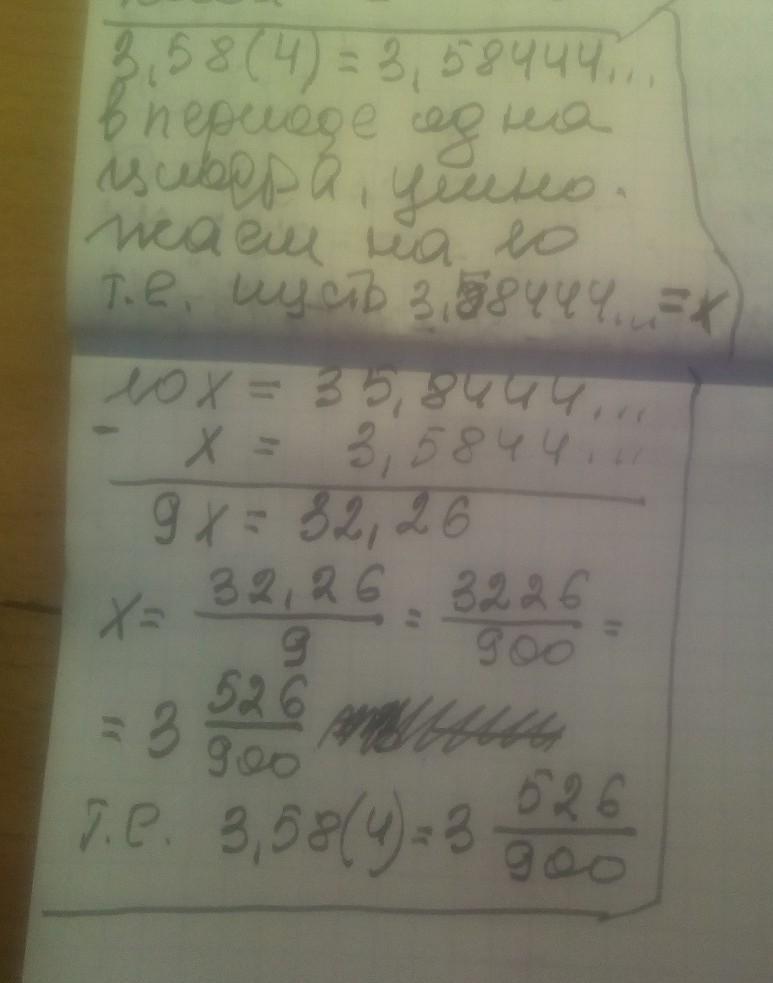 3,58(4) = 3,58444...
в периоде одна
цифра, умно-
жаем на 10
т.е. пусть 3,58444... = x
10x = 35,8444...
- x = 3,5844...
9x = 32,26
x = 32,26/9 = 3226/900 =
= 3 526/900
т.е. 3,58(4) = 3 526/900